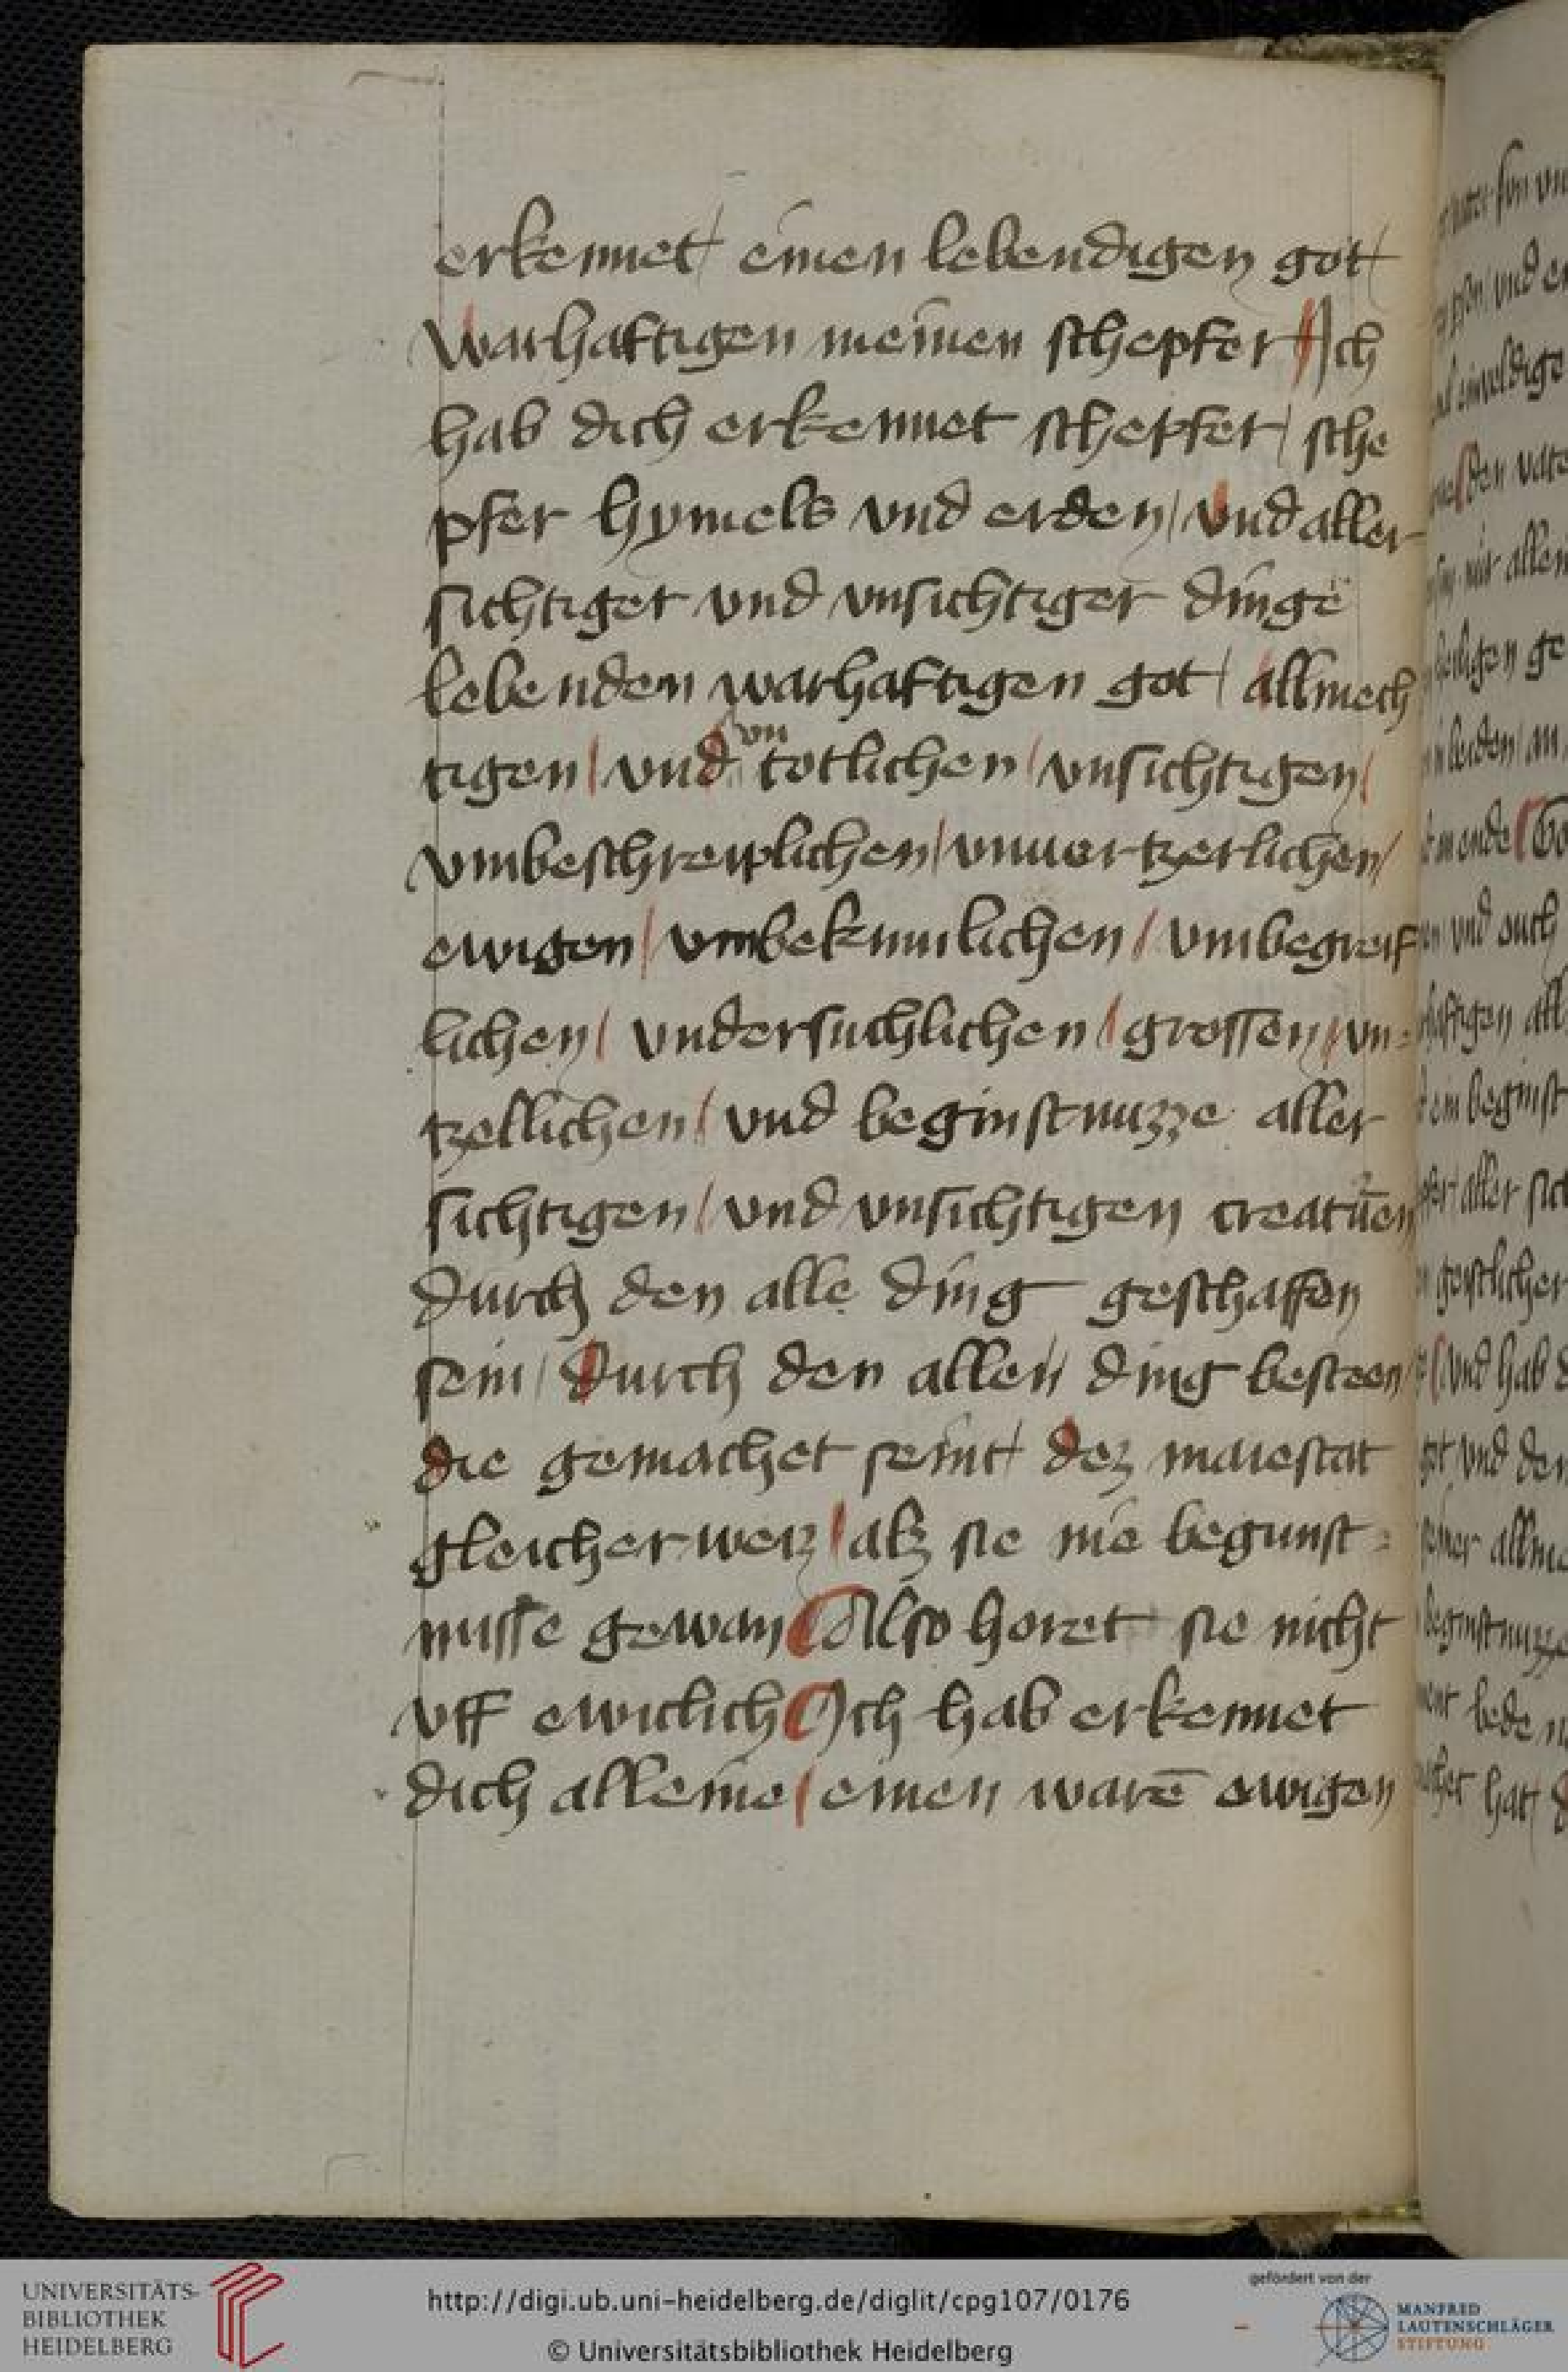 erkennet / einen lebendigen got /
warhaftigen meinen schepfer / Ich
hab dich erkennet schepfer / sche
pfer hymels vnd erden / vnd aller
sichtiger vnd vnsichtiger dinge
lebenden warhaftigen got / allmech
tigen / vnd vntotlichen / vnsichtigen /
vmbeschreiplichen / vnuertzerlichen /
ewigen / vmbekumlichen / vmbegreif
lichen / vndersuchlichen / grossen / vn=
tzellichen / vnd beginstnuzze aller
sichtigen / vnd vnsichtigen creatuͤren
durch den alle ding geschaffen
sein / durch den allen ding besteen /
die gemachet seint / dez maiestat
gleicher weiz / alz sie nie begunst=
nusse gewan Also horet sie nicht
vff ewiclich Ich hab erkennet
dich alleine / einen warē ewigen
UNIVERSITÄTS-
BIBLIOTHEK
HEIDELBERG
http://digi.ub.uni-heidelberg.de/diglit/cpg107/0176
© Universitätsbibliothek Heidelberg
gefördert von der
MANFRED
LAUTENSCHLÄGER
STIFTUNG